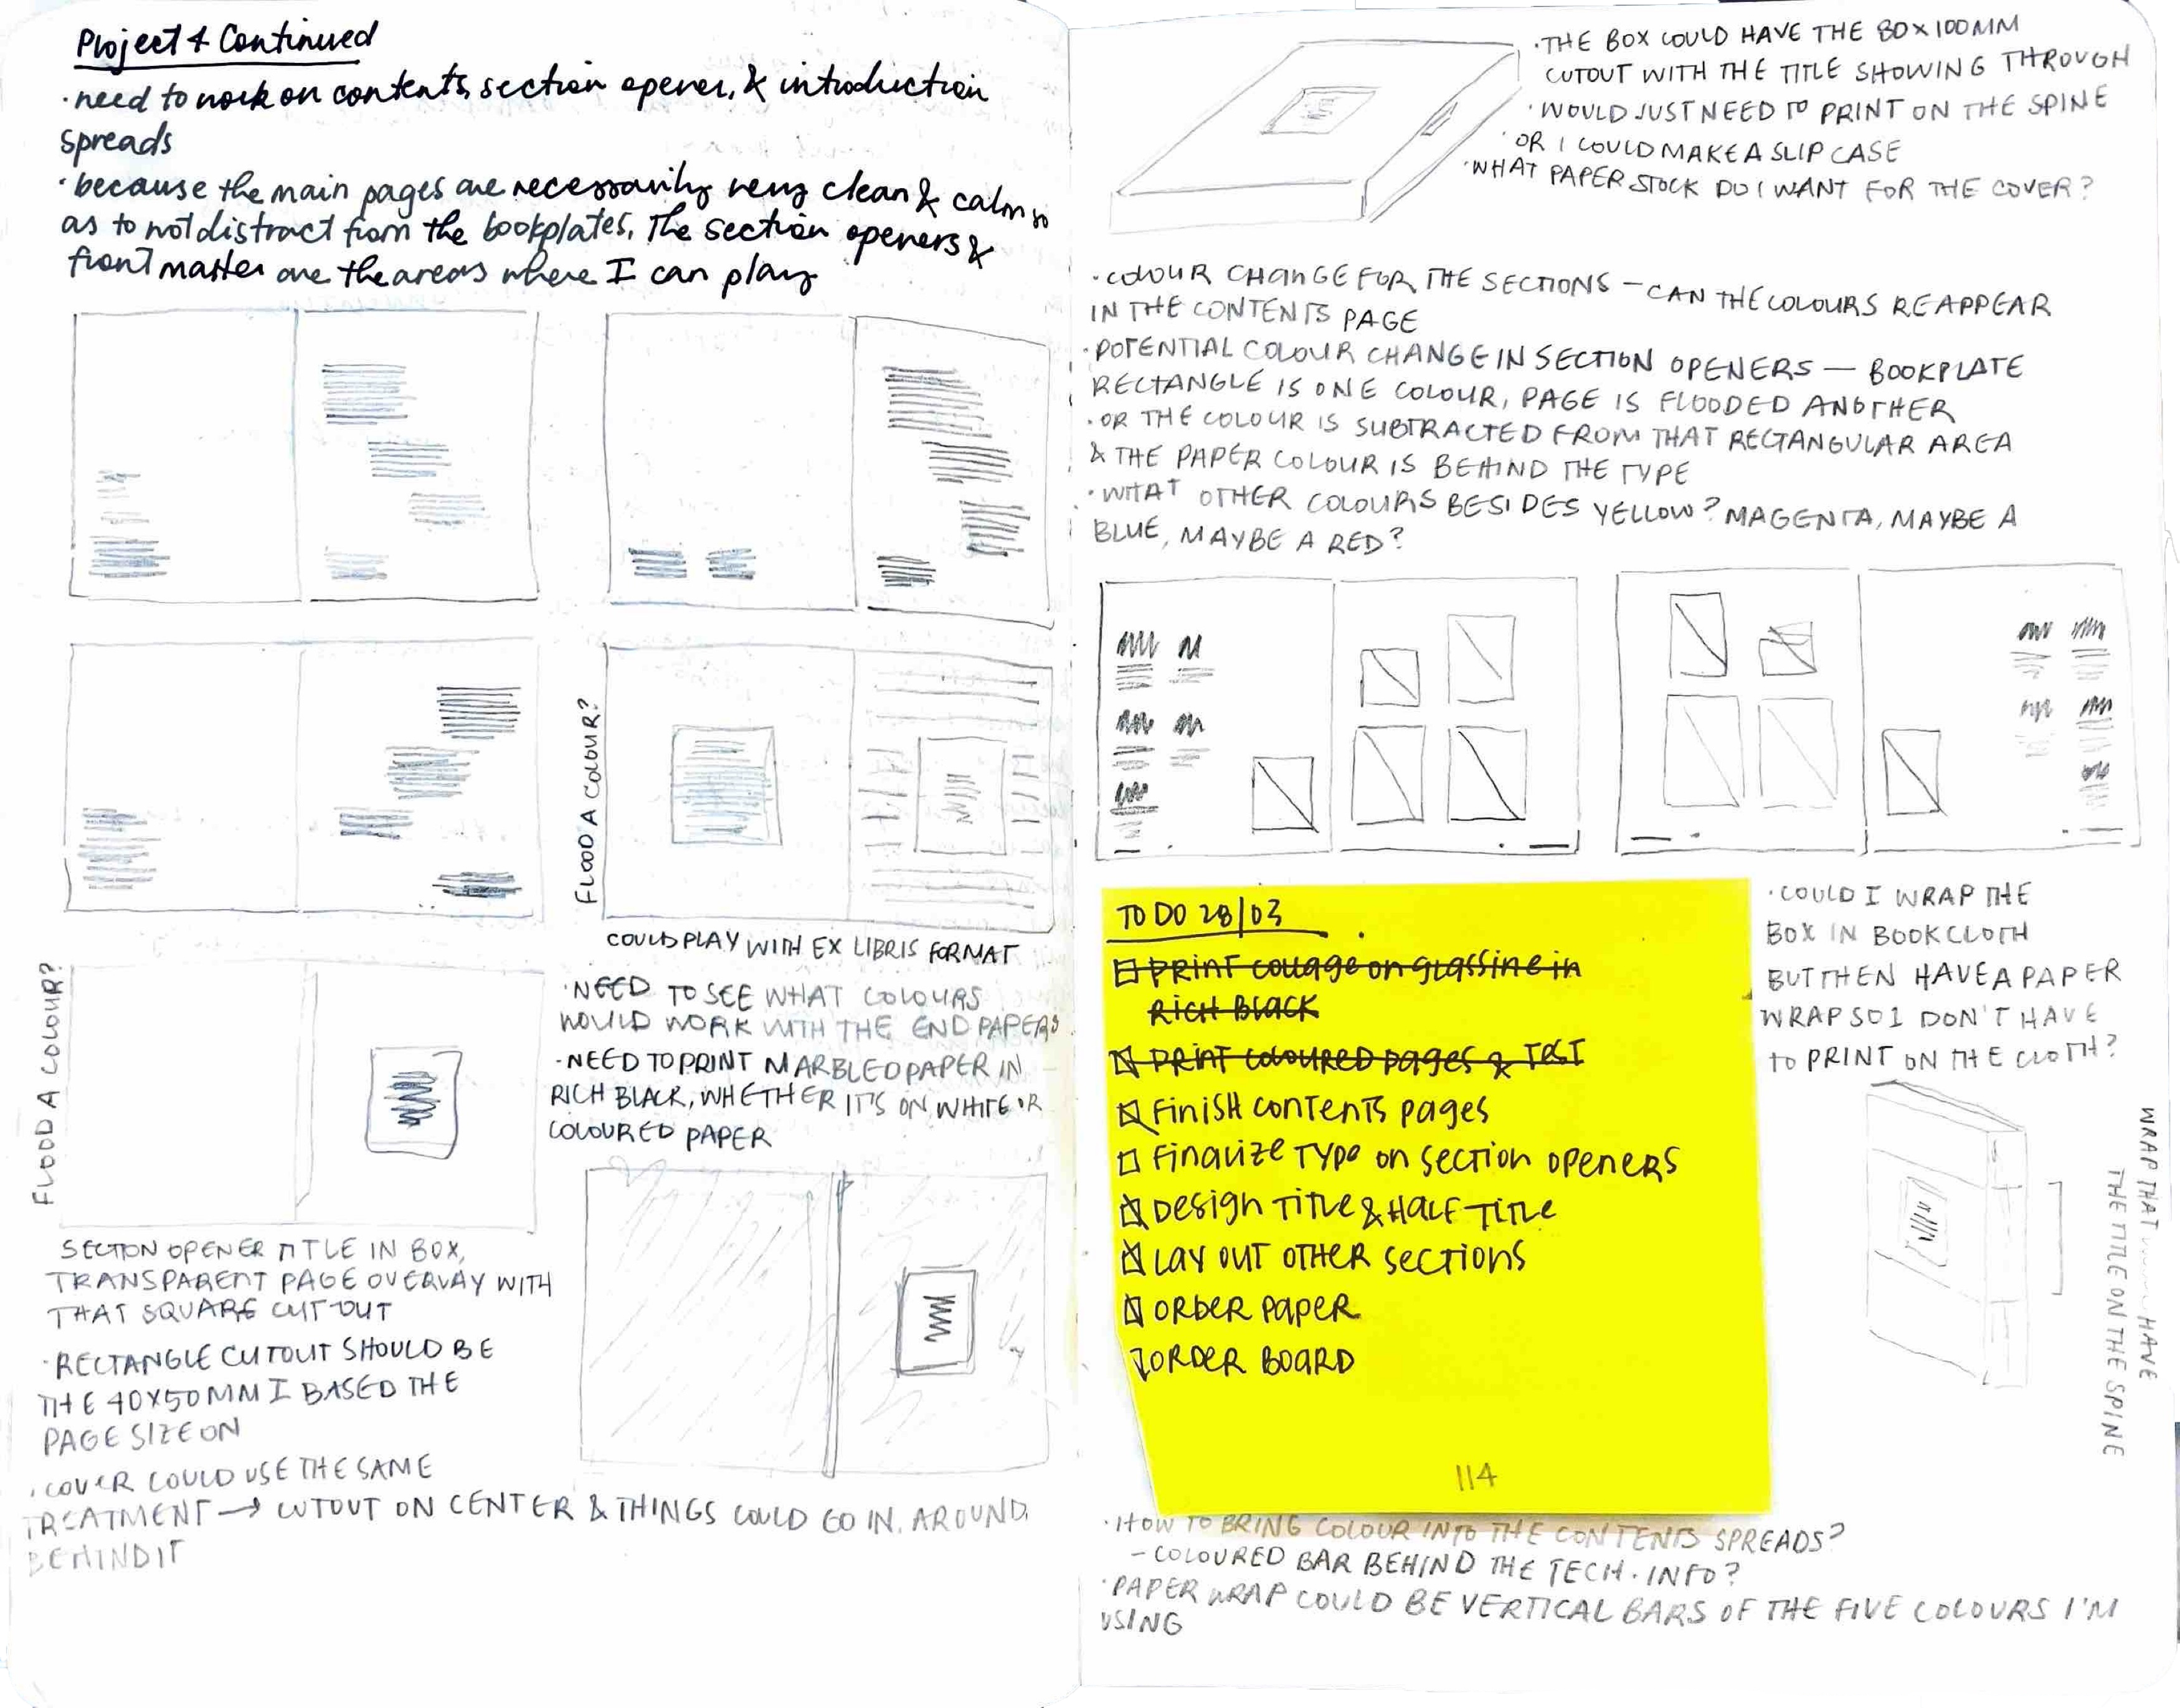 Project 4 Continued
·need to work on contents, section opener, & introduction
spreads
·because the main pages are necessarily very clean & calm so
as to not distract from the bookplates, the section openers &
front matter are the areas where I can play
FLOOD A COLOUR?
COULD PLAY WITH EX LIBRIS FORMAT
·NEED TO SEE WHAT COLOURS
WOULD WORK WITH THE END PAPERS
·NEED TO PRINT MARBLED PAPER IN
RICH BLACK, WHETHER IT'S ON WHITE OR
COLOURED PAPER
FLOOD A COLOUR?
SECTION OPENER TITLE IN BOX,
TRANSPARENT PAGE OVERLAY WITH
THAT SQUARE CUT OUT
·RECTANGLE CUTOUT SHOULD BE
THE 40X50MM I BASED THE
PAGE SIZE ON
·COVER COULD USE THE SAME
TREATMENT → CUTOUT ON CENTER & THINGS COULD GO IN, AROUND,
BEHIND IT
·THE BOX COULD HAVE THE 80X100MM
CUTOUT WITH THE TITLE SHOWING THROUGH
·WOULD JUST NEED TO PRINT ON THE SPINE
·OR I COULD MAKE A SLIP CASE
·WHAT PAPER STOCK DO I WANT FOR THE COVER?
·COLOUR CHANGE FOR THE SECTIONS – CAN THE COLOURS REAPPEAR
IN THE CONTENTS PAGE
·POTENTIAL COLOUR CHANGE IN SECTION OPENERS – BOOKPLATE
RECTANGLE IS ONE COLOUR, PAGE IS FLOODED ANOTHER
·OR THE COLOUR IS SUBTRACTED FROM THAT RECTANGULAR AREA
& THE PAPER COLOUR IS BEHIND THE TYPE
·WHAT OTHER COLOURS BESIDES YELLOW? MAGENTA, MAYBE A
BLUE, MAYBE A RED?
TO DO 28/03
PRINT COLLAGE ON GLASSINE IN
RICH BLACK
PRINT COLOURED PAGES & TEST
FINISH CONTENTS PAGES
FINALIZE TYPE ON SECTION OPENERS
DESIGN TITLE & HALF TITLE
LAY OUT OTHER SECTIONS
ORDER PAPER
ORDER BOARD
114
·COULD I WRAP THE
BOX IN BOOKCLOTH
BUT THEN HAVE A PAPER
WRAP SO I DON'T HAVE
TO PRINT ON THE CLOTH?
WRAP THAT HAVE
THE TITLE ON THE SPINE
·HOW TO BRING COLOUR INTO THE CONTENTS SPREADS?
– COLOURED BAR BEHIND THE TECH. INFO?
·PAPER WRAP COULD BE VERTICAL BARS OF THE FIVE COLOURS I'M
USING